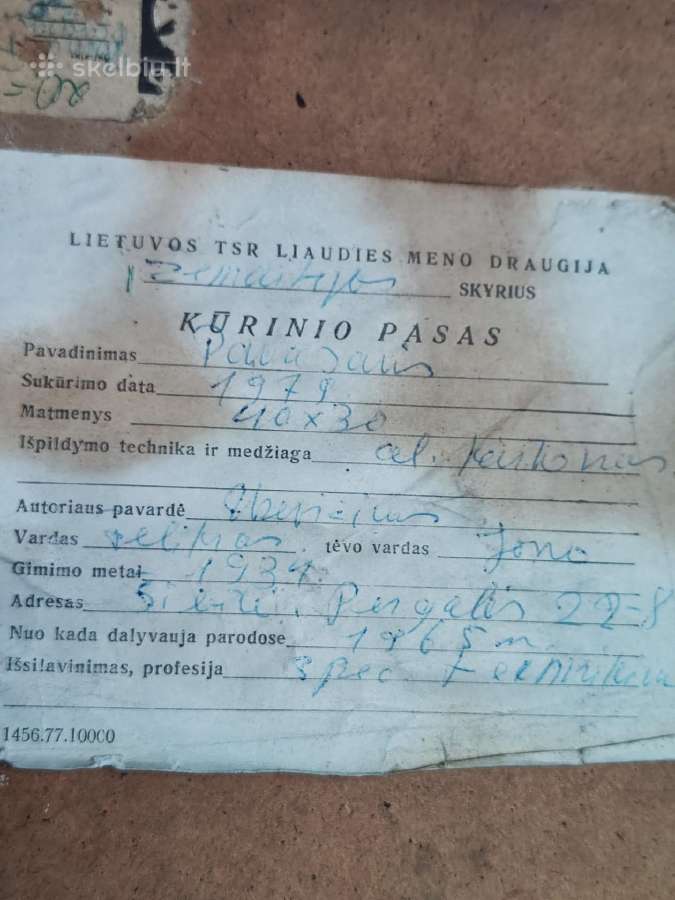 skelbiu.lt
LIETUVOS TSR LIAUDIES MENO DRAUGIJA
Žemaitijos SKYRIUS
KŪRINIO PASAS
Pavadinimas Pavasaris
Sukūrimo data 1979
Matmenys 40x30
Išpildymo technika ir medžiaga al. kartonas
Autoriaus pavardė
Vardas Feliksas tėvo vardas Jono
Gimimo metai 1937.
Adresas Pergalės 22-8
Nuo kada dalyvauja parodose 1965 m.
Išsilavinimas, profesija spec.
1456.77.10000